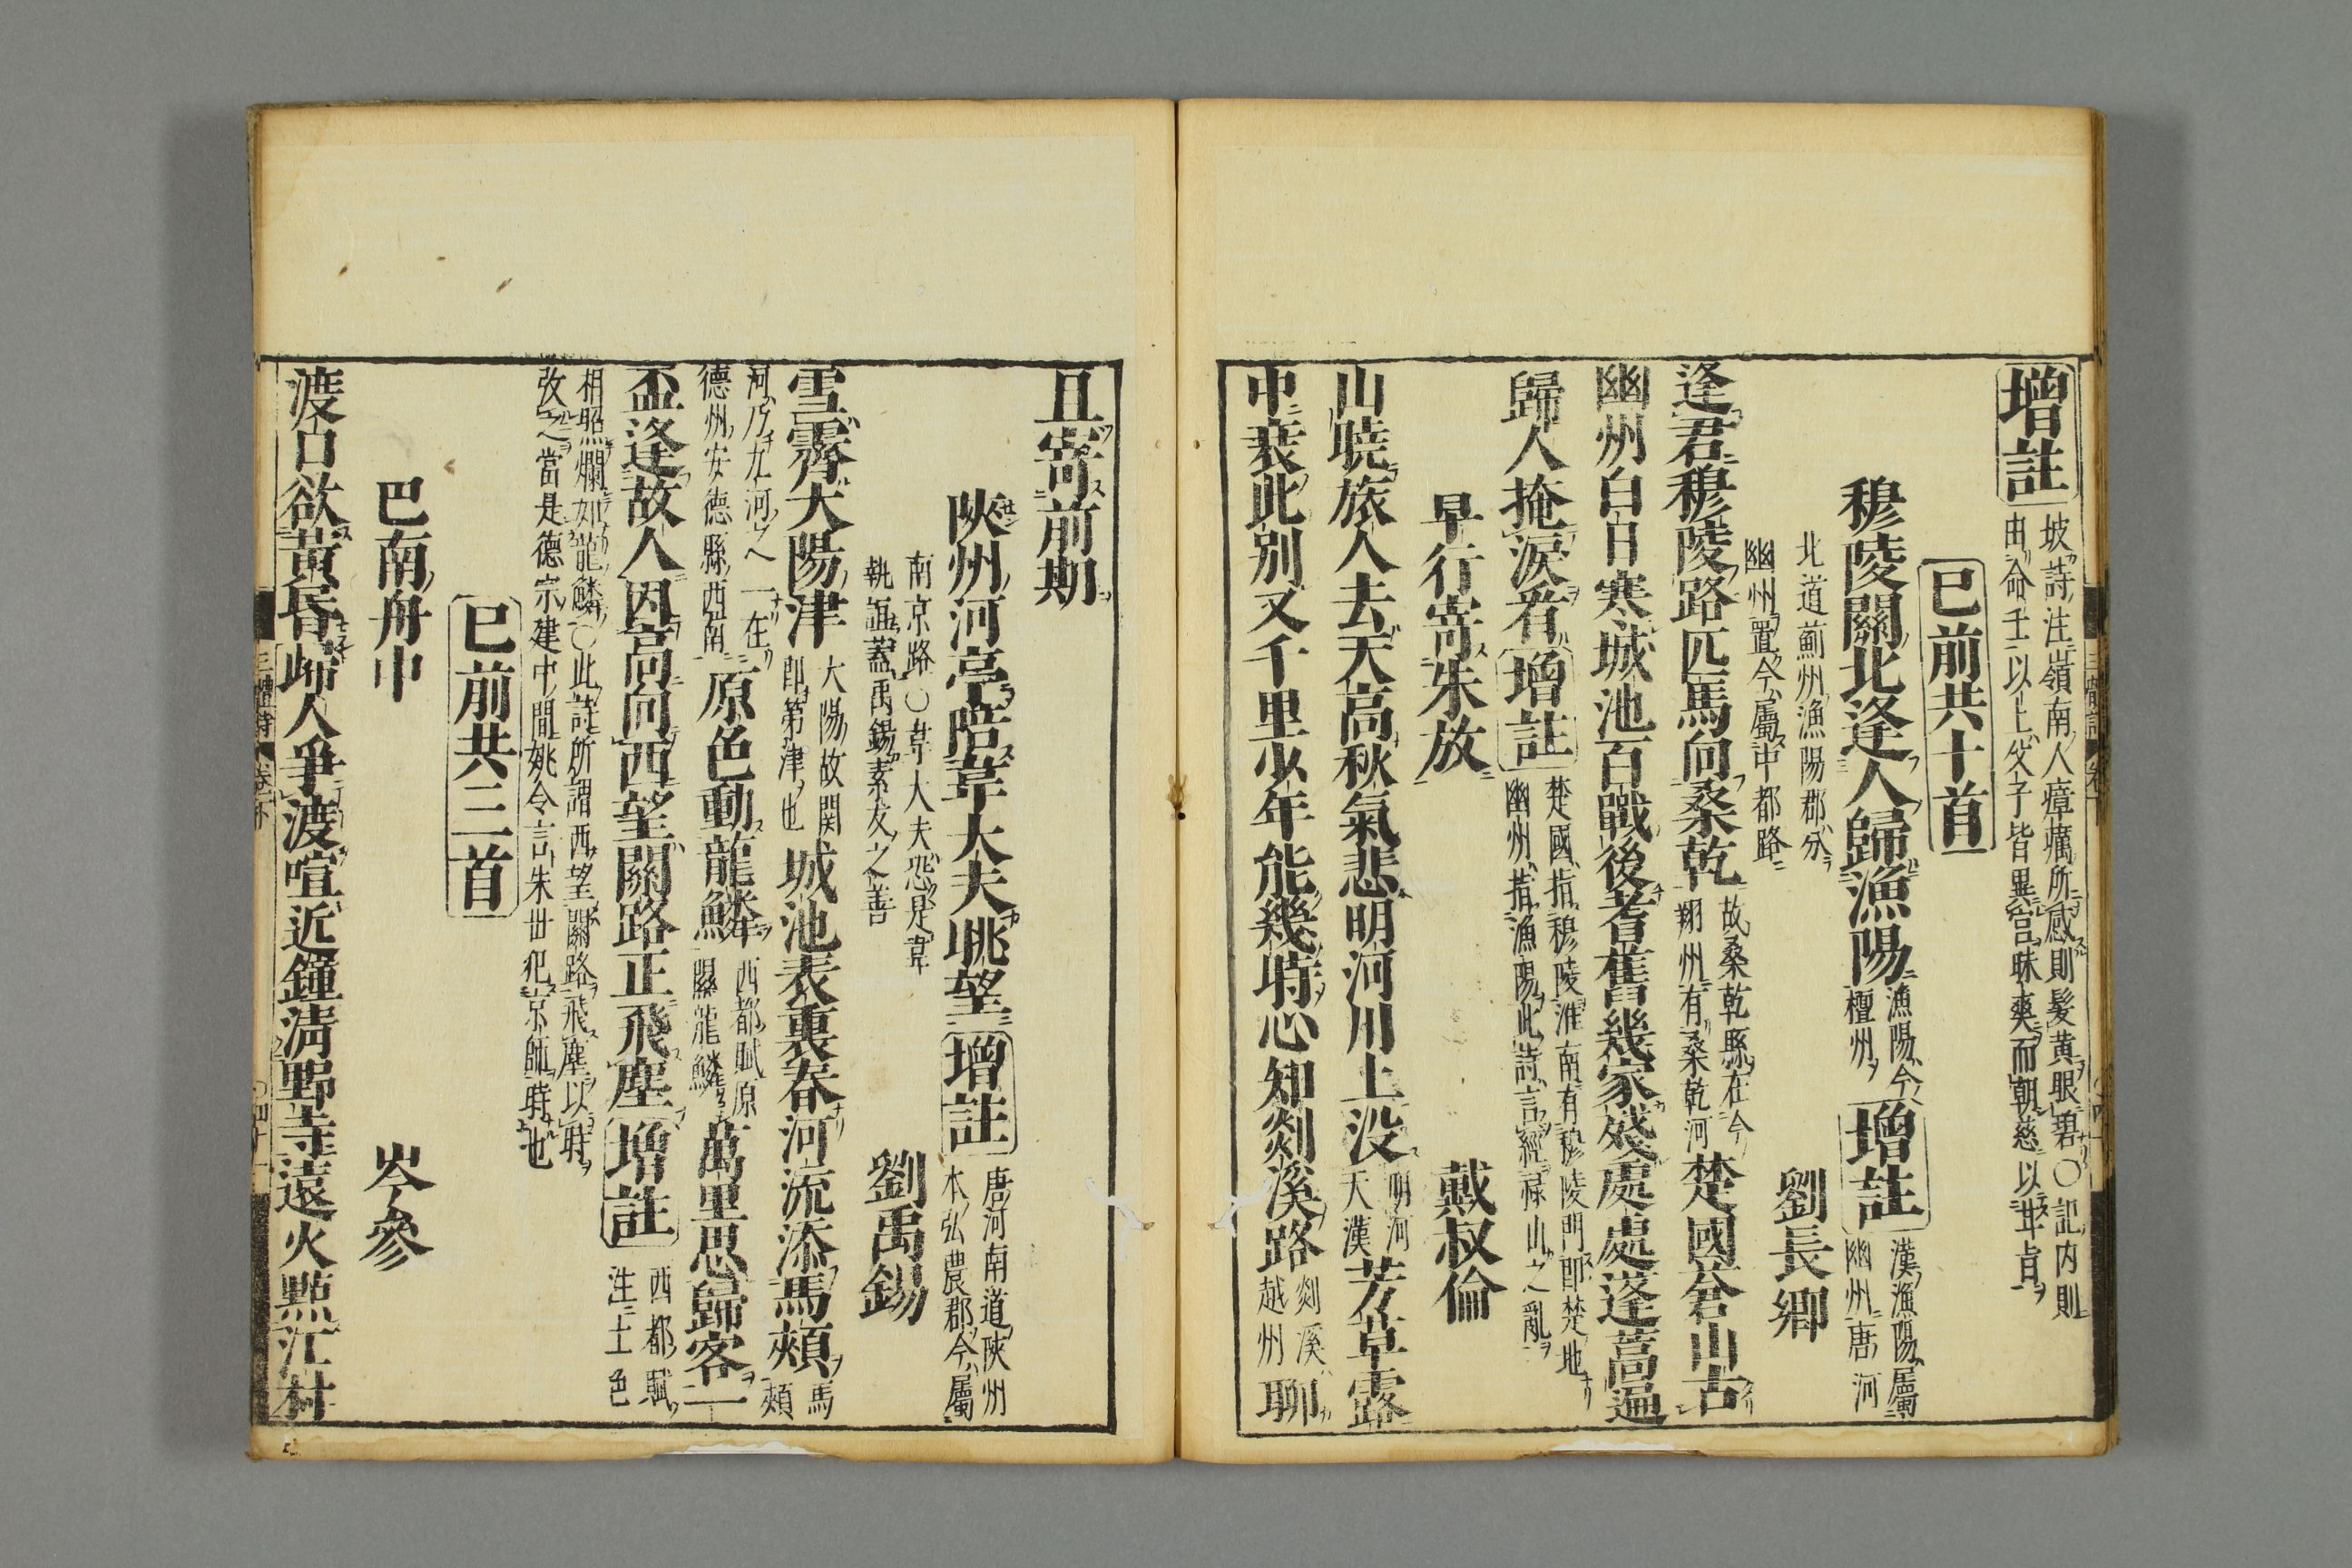 增註
坡詩注嶺南人瘴癘所感則髮黃眼碧〇記内則
由命士以上父子皆異宮昧爽而朝慈以旨甘
已前共十首
穆陵關北逢人歸漁陽
漁陽今
檀州
增註
漢漁陽屬
幽州唐河
北道薊州漁陽郡分
幽州置今屬中都路
劉長卿
逢君穆陵路匹馬向桑乾
故桑乾縣在今
朔州有桑乾河
楚國蒼山古
幽州白日寒城池百戰後耆舊幾家殘處處蓬蒿遍
歸人掩淚看
增註
楚國指穆陵淮南有穆陵門即楚地
幽州指漁陽此詩言經祿山之亂
早行寄朱放
戴叔倫
山曉旅人去天高秋氣悲明河川上没
明河
天漢
芳草露
中衰此别又千里少年能幾時心知剡溪路
剡溪
越州
聊
且寄前期
陝州河亭陪韋大夫眺望
增註
唐河南道陝州
本弘農郡今屬
南京路〇韋大夫恐是韋
執誼蓋禹錫素友之善
劉禹錫
雪霽大陽津
大陽故関
即第津也
城池表裏春河流添馬頰
馬
頰
河乃九河之一在
德州安德縣西南
原色動龍鱗
西都賦原
隰龍鱗
萬里思歸客一
盃逢故人因高向西望關路正飛塵
增註
西都賦
注土色
相照爛如龍鱗〇此詩所謂西望關路飛塵以時
攷之當是德宗建中間姚令言朱泚犯京師時也
已前共三首
巴南舟中
岑參
渡口欲黃昏歸人爭渡喧近鐘清野寺遠火點江村
三體詩
卷下
〇四十一